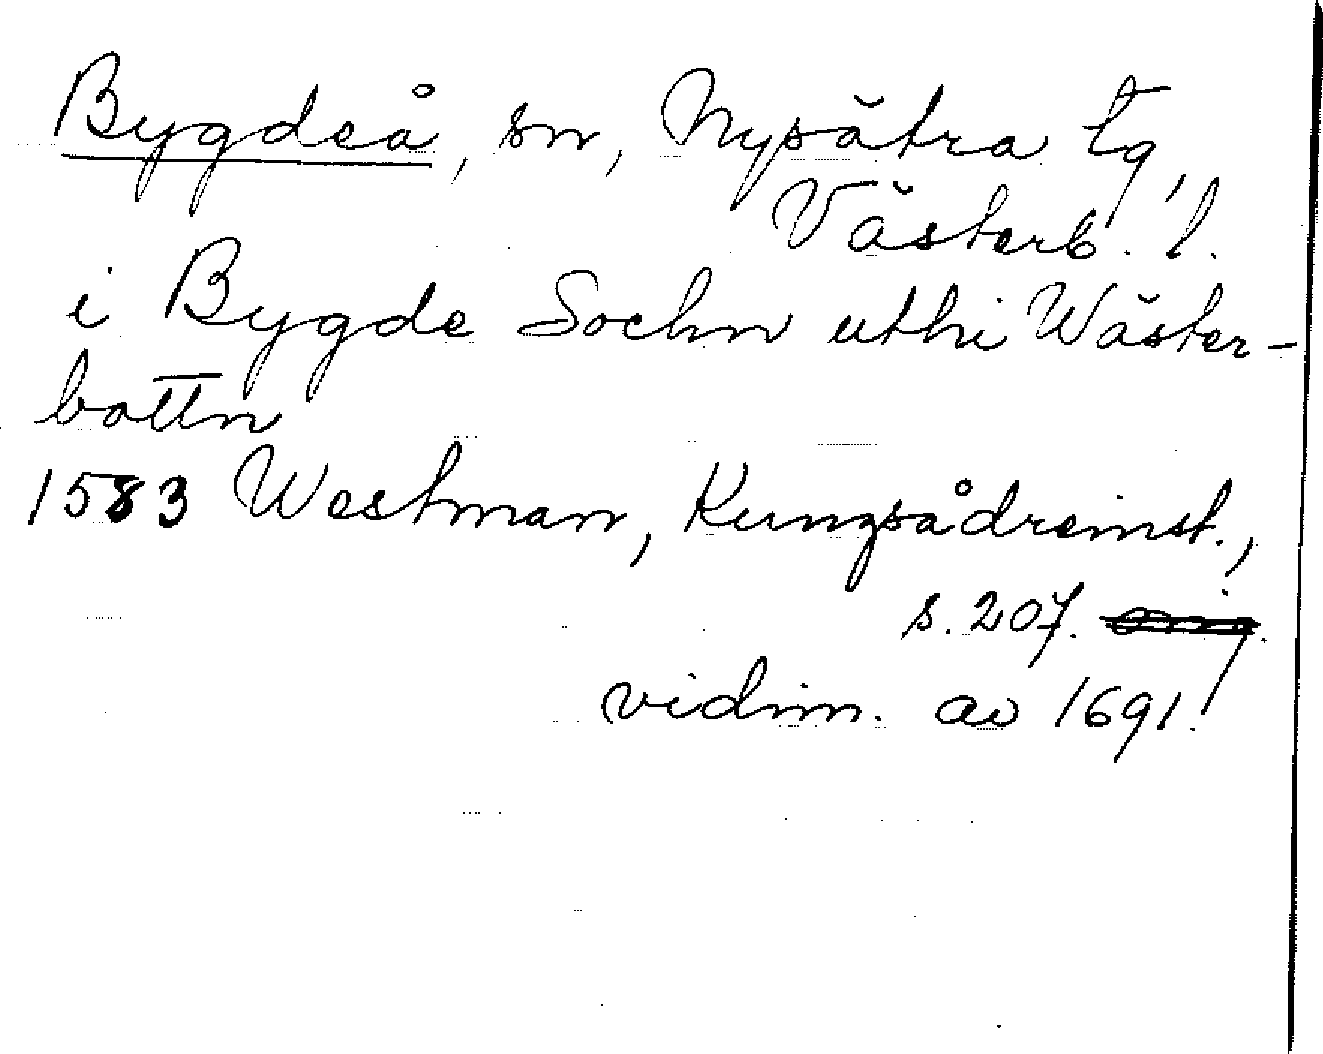 Bygdeå, sn, Nysätra tg,
Västerb. l.
i Bygde Sochn uthi Wäster-
bottn
1583 Westman, Kungsådreinst.,
s. 207.
vidim. av 1691.